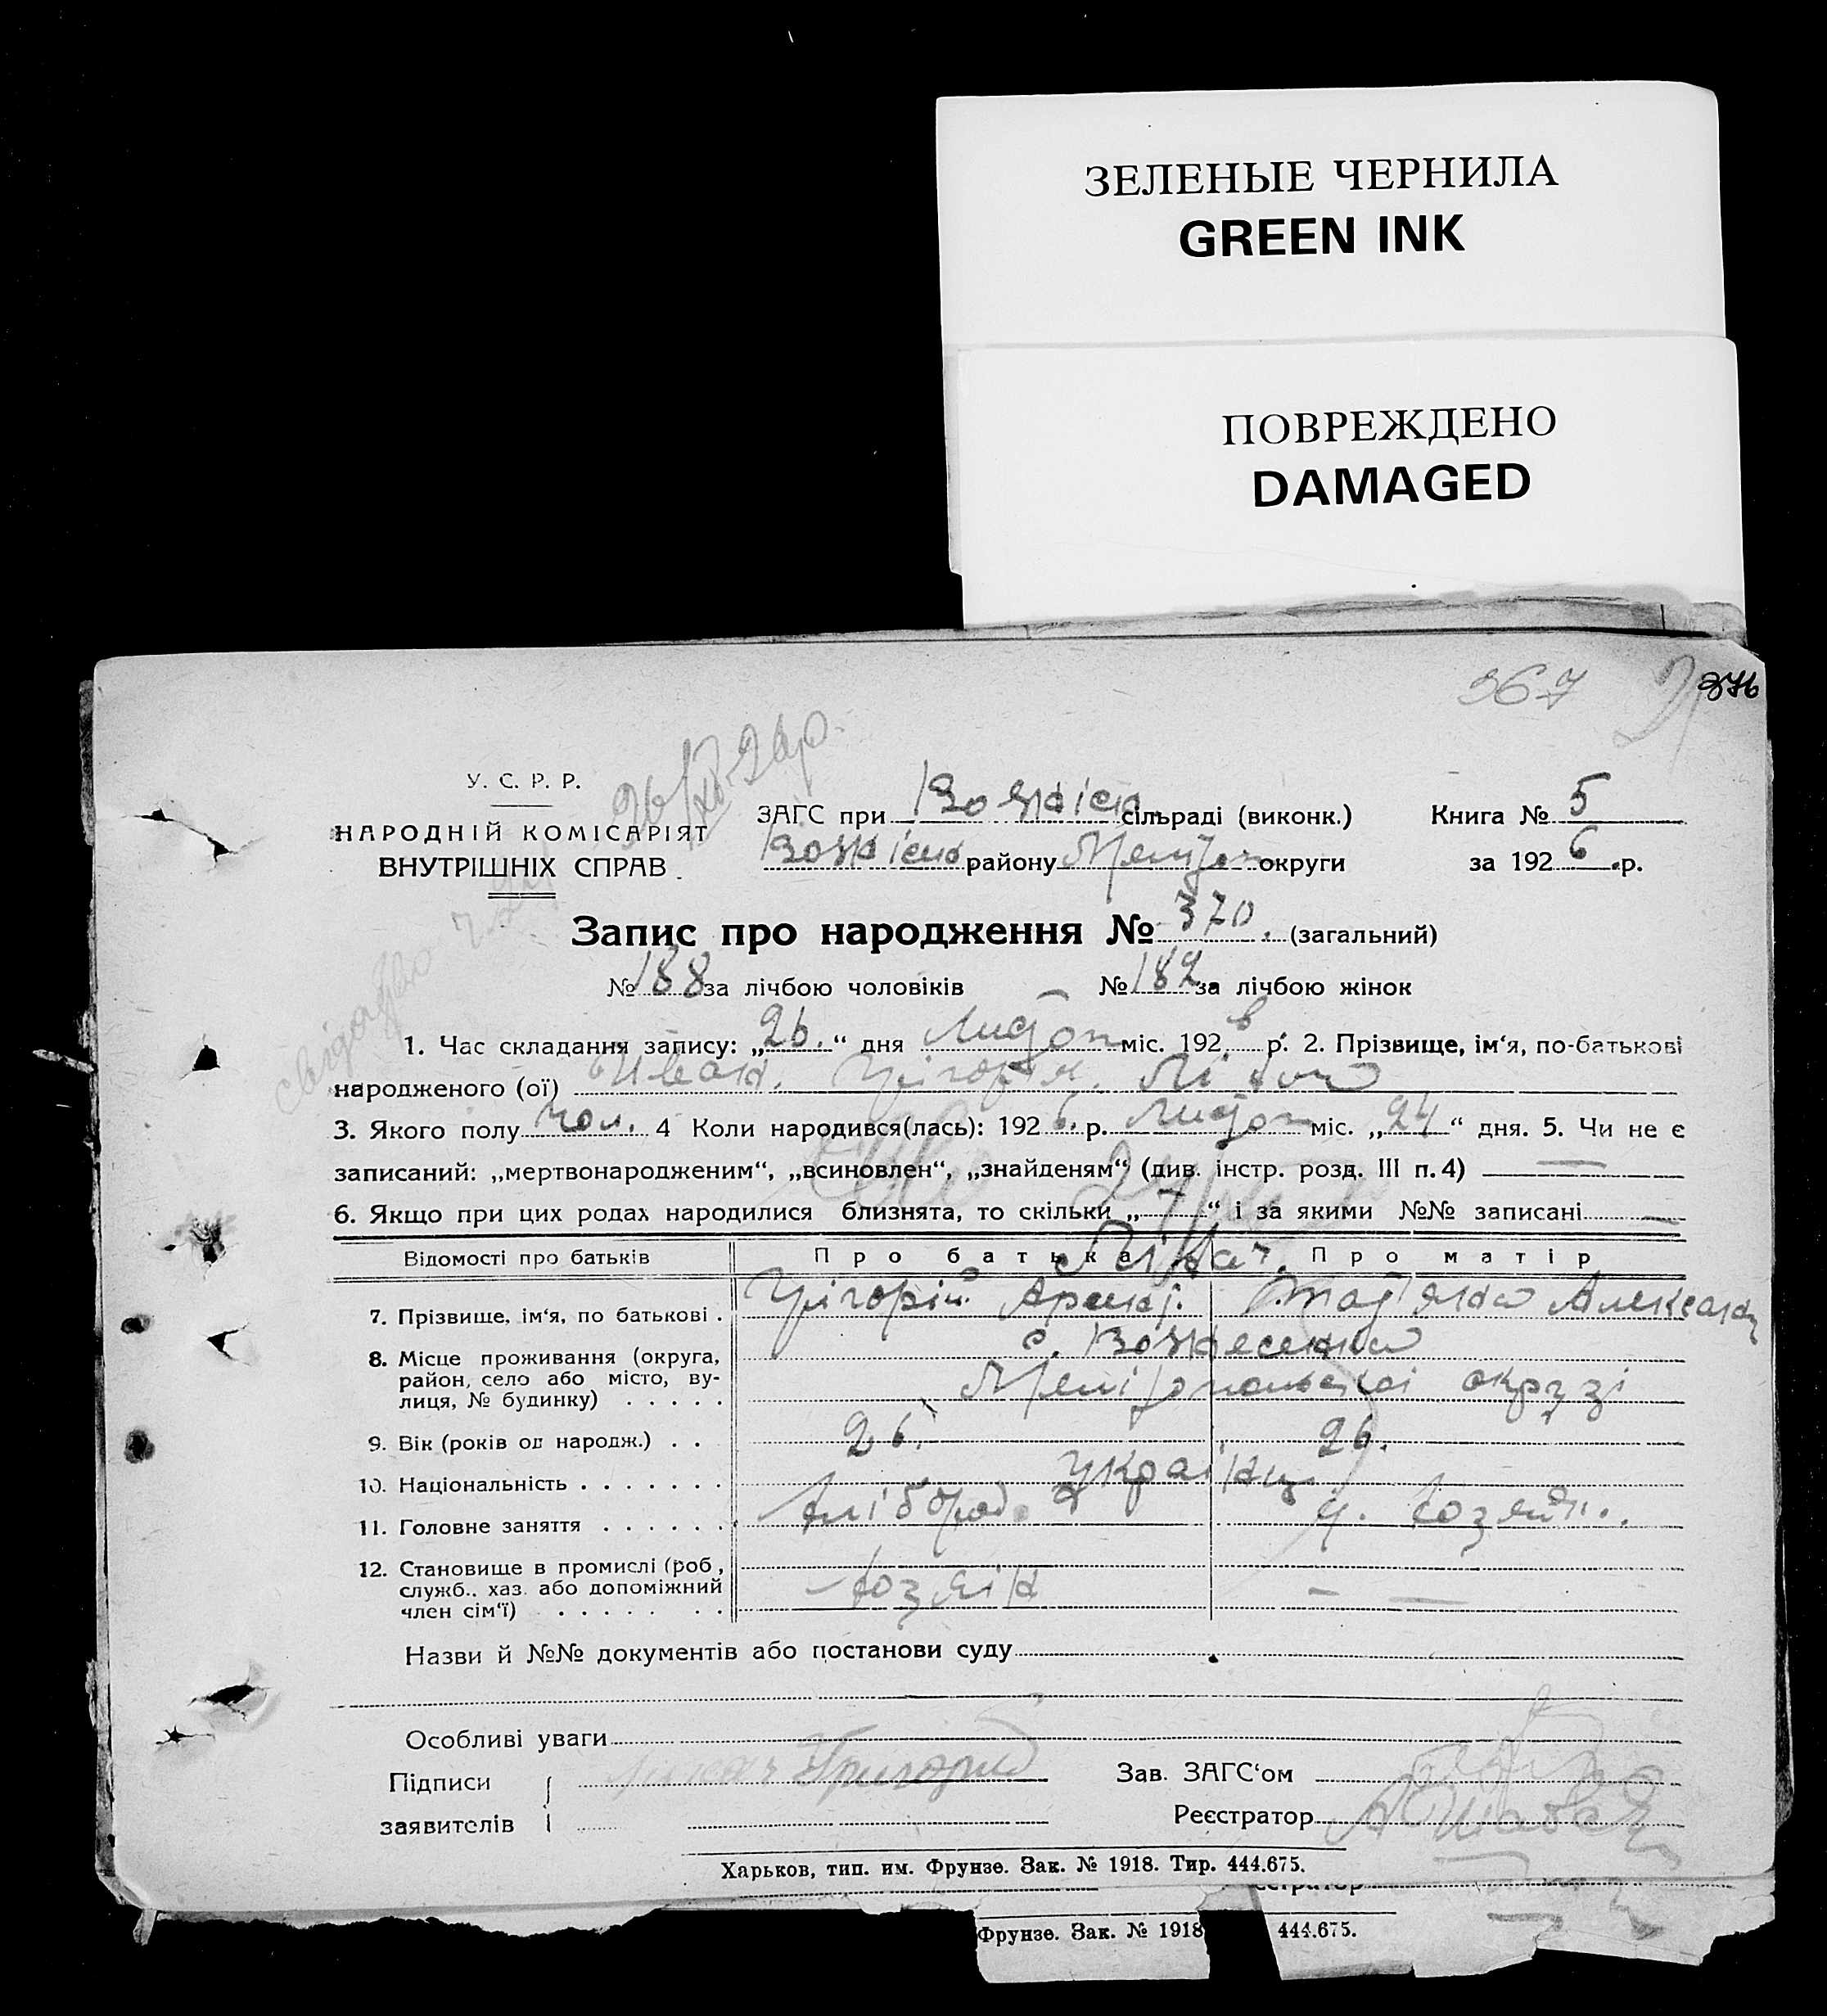 ЗЕЛЕНЫЕ ЧЕРНИЛА
GREEN INK
ПОВРЕЖДЕНО
DAMAGED
367
376
26/XI-26р.
У. С. Р. Р.
НАРОДНІЙ КОМІСАРІЯТ
ВНУТРІШНІХ СПРАВ
ЗАГС при Вознісен. сільраді (виконк.) Книга № 5
Вознісен району Меліт. округи за 1926 р.
Запис про народження № 370. (загальний)
№ 188 за лічбою чоловіків № 182 за лічбою жінок
1. Час складання запису: „26.“ дня Листоп міс. 1926 р. 2. Прізвище, ім‘я, по-батькові
народженого (ої) Иван. Грігор'єв.
3. Якого полу чол. 4 Коли народився(лась): 1926. р. Листоп міс. „24“ дня. 5. Чи не є
записаний: „мертвонародженим“, „всиновлен“, „знайденям“ (див. інстр. розд. III п. 4) —
6. Якщо при цих родах народилися близнята, то скільки „ “ і за якими №№ записані —
Відомості про батьків Про батька Про матір
Лікач.
7. Прізвище, ім‘я, по батькові . Грігорій Тат'яна Александ
8. Місце проживання (округа, район, село або місто, вулиця, № будинку) . . . . . с. Вознесенка
Мелітопольскої окрузі
9. Вік (років од народж.) . . 26. 26.
10. Національність . . . . . . . Українці
11. Головне заняття . . . . . . Хлібороб. д. хозяйк.
12. Становище в промислі (роб, служб.. хаз. або допоміжний член сім‘ї) . . . . . . . хозяін —
Назви й №№ документів або постанови суду
Особливі уваги
Підписи заявителів { Ликач Григорий
Зав. ЗАГС‘ом
Реєстратор
Харьков, тип. им. Фрунзе. Зак. № 1918. Тир. 444.675.
Фрунзе. Зак. № 1918 444.675.